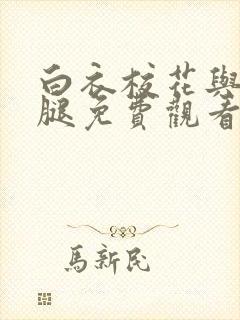 白衣校花與
腿免費觀看
馬新民